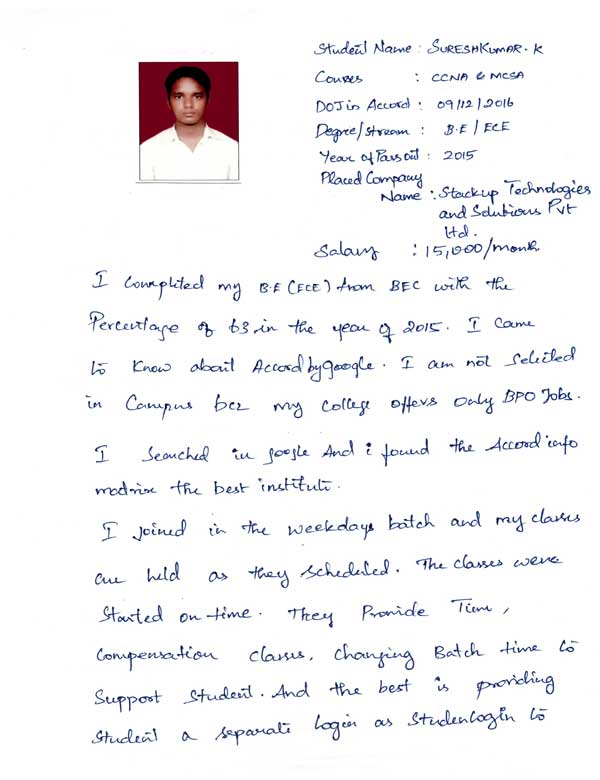 Student Name : SURESHKUMAR. K
Courses : CCNA & MCSA
DOJ in Accord : 09/12/2016
Degree/stream : B.E / ECE
Year of Pass out : 2015
Placed Company
Name : Stackup Technologies
and Solutions Pvt
Ltd.
Salary : 15,000/month
I completed my B.E (ECE) from BEC with the
Percentage of 63 in the year of 2015. I came
to know about Accord by google. I am not Selected
in Campus bcz my college offers only BPO Jobs.
I Searched in google And i found the Accord info
matrix the best institute.
I joined in the weekdays batch and my classes
are held as they scheduled. The classes were
Started on-time. They Provide Time,
Compensation classes, changing Batch time to
Support Student. And the best is providing
Student a separate login as Studenlogin to